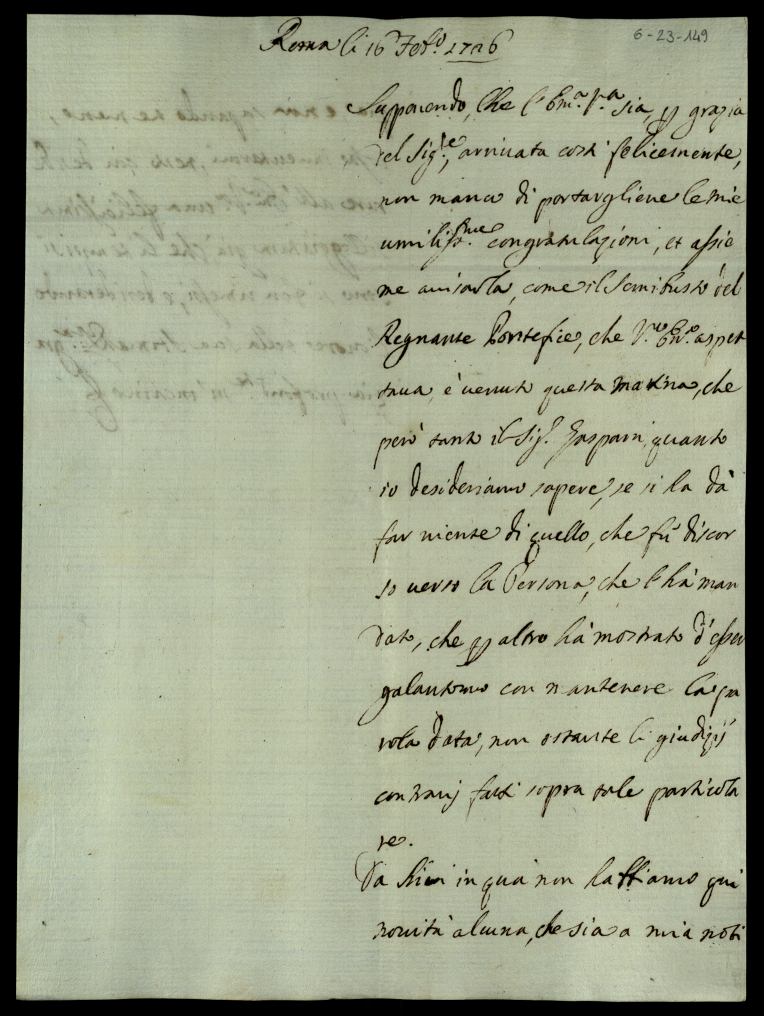 6-23-149
Roma li 16 Feb.o 1726
Supponendo, che l'Em.a V.ra sia, p grazia
del Sig.re, arrivata costi felicemente,
non manco di portargliene le mie
umiliss.me congratulazioni, et assie
me avisarla, come il Semibusto del
Regnante Pontefice, che V.ra Em.a aspet
tava, è venuto questa matina, che
però tanto il Sig.r Gaspari, quanto
io desideriamo sapere, se si ha da
far niente di quello, che fù discor
so verso la Persona, che l'hà man
dato, che p altro hà mostrato d'esser
galantomo con mantenere la pa
rola data, non ostante li giudizij
contrarij fatti sopra tale particola
re.
Da hieri in quà non habbiamo qui
novità alcuna, che sia a mia noti